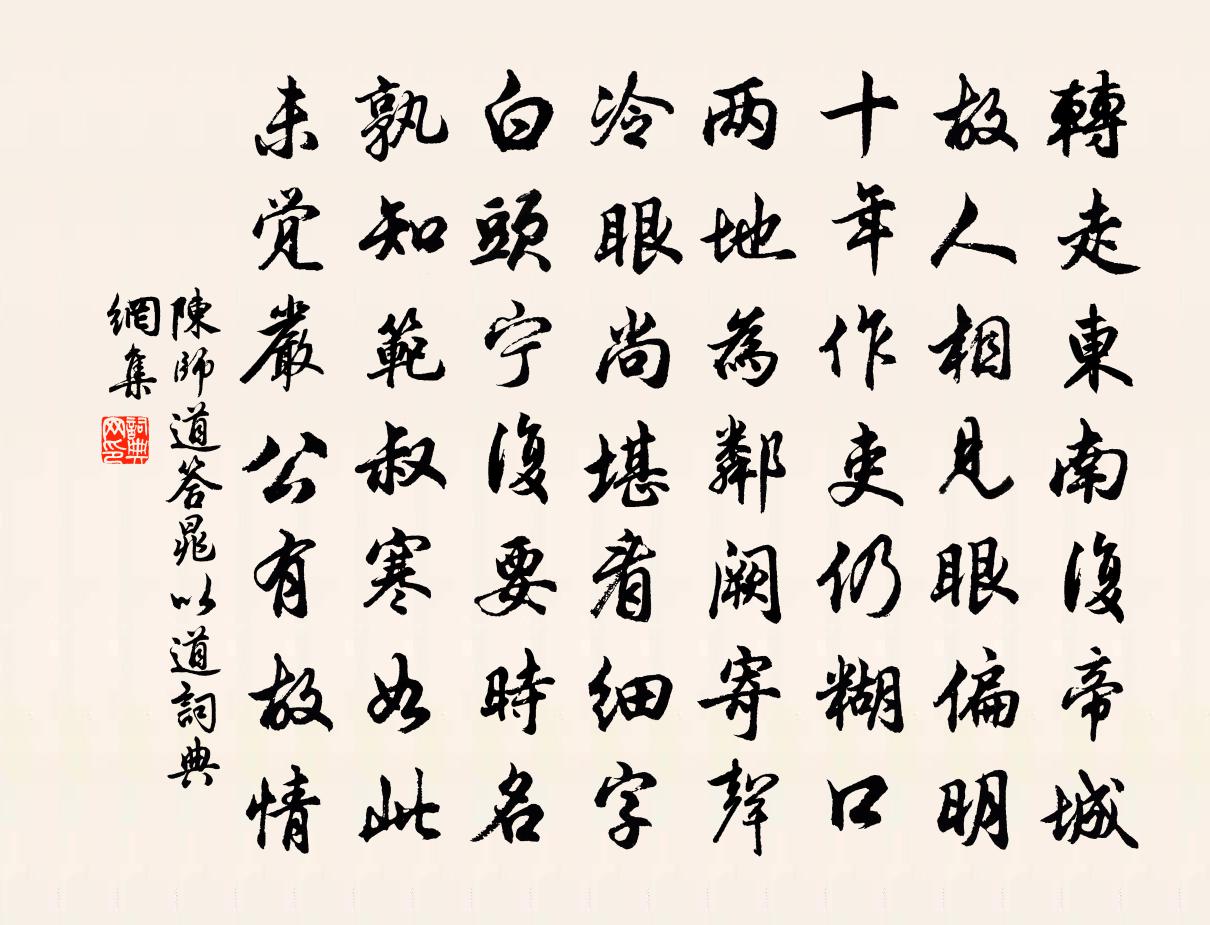 轉走東南復帝城
故人相見眼偏明
十年作吏仍糊口
两地為鄰阙寄聲
冷眼尚堪看细字
白頭宁復要時名
孰知範叔寒如此
未觉嚴公有故情
陳師道答晁以道詞典
網集
詞典
网印